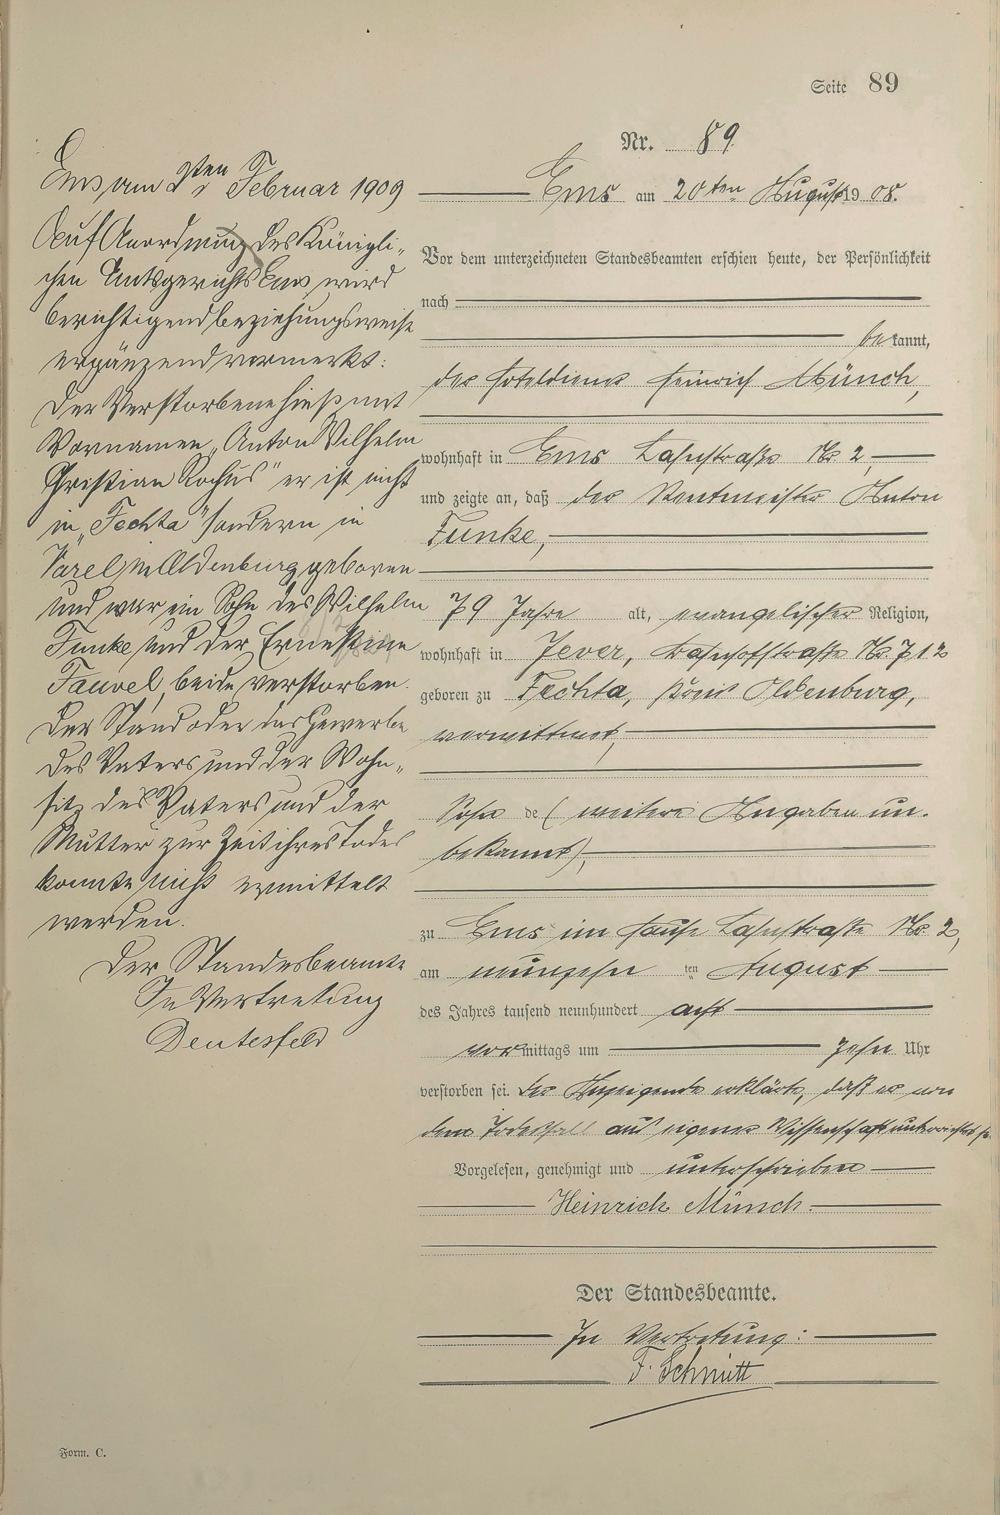 Seite 89
Nr. 89
Ems am 20ten August 1908.
Vor dem unterzeichneten Standesbeamten erschien heute, der Persönlichkeit
nach
bekannt,
der Hoteldiener Heinrich Münch,
wohnhaft in Ems Lahnstraße No 2,
und zeigte an, daß der Rentmeister Anton
Funke,
79 Jahre alt, evangelischer Religion,
wohnhaft in Jever, Bahnhofstraße No. 712
geboren zu Fechta, Kreis Oldenburg,
verwittwet,
Sohn de (weitere Angaben un-
bekannt),
zu Ems im Hause Lahnstraße No 2,
am neunzehnten August
des Jahres tausend neunhundert acht
vormittags um zehn Uhr
verstorben sei. Der Anzeigende erklärte, daß er von
dem Todesfall aus eigener Wissenschaft unterrichtet sei.
Vorgelesen, genehmigt und unterschrieben
Heinrich Münch.
Der Standesbeamte.
In Vertretung:
F. Schmitt
Ems am 2ten Februar 1909
Auf Anordnung des Königli-
chen Amtsgerichts Ems wird
berichtigend beziehungsweise
ergänzend vermerkt:
Der Verstorbene hieß mit
Vornamen „Anton Wilhelm
Christian Rochus" er ist nicht
in „Fechta" sondern in
Varel in Oldenburg geboren
und war ein Sohn des Wilhelm
Funke und der Ernestine
Fauvel, beide verstorben.
Der Stand oder das Gewerbe
des Vaters und der Wohn-
sitz des Vaters und der
Mutter zur Zeit ihres Todes
konnte nicht ermittelt
werden.
Der Standesbeamte
In Vertretung
Deutesfeld
Form. C.